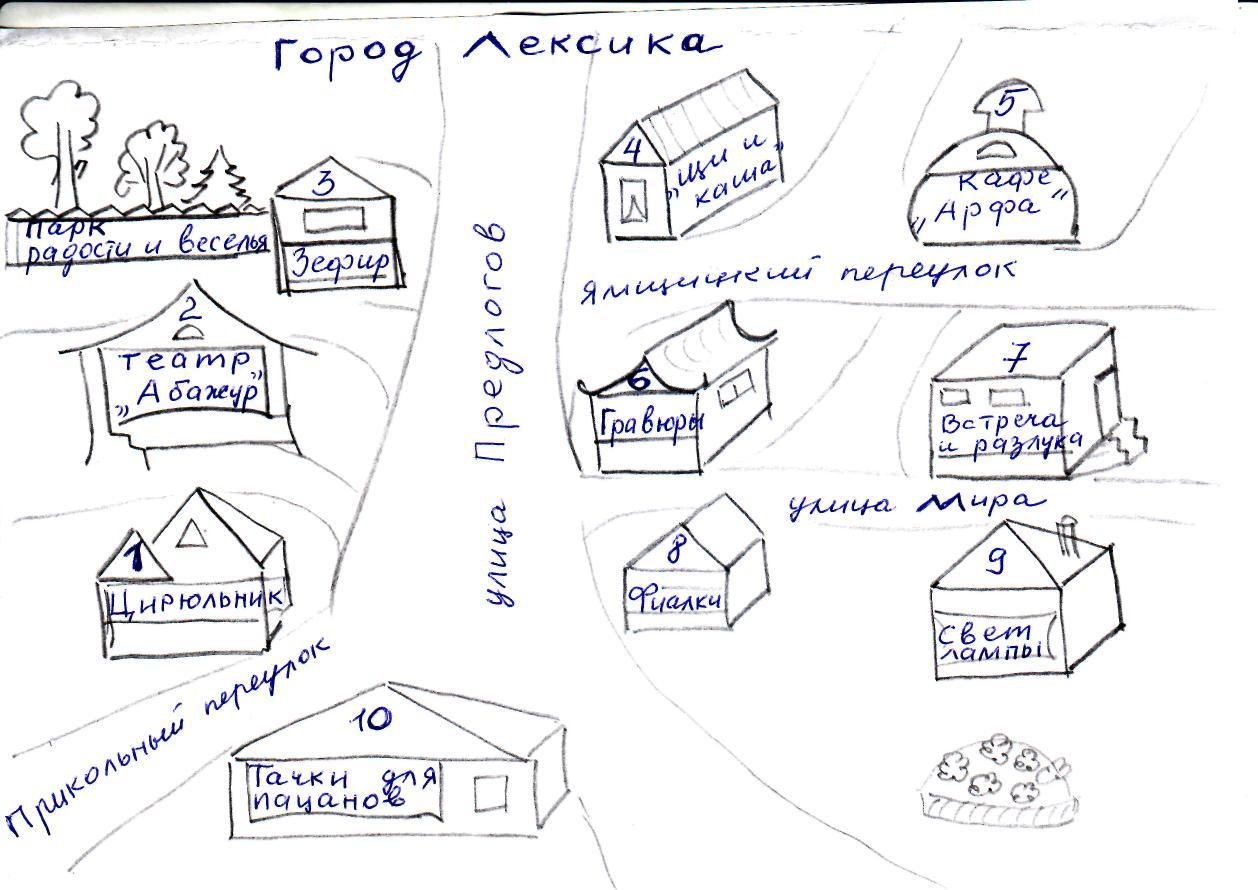 Город Лексика
Парк
радости и веселья
3
Зефир
4
„Щи и
каша”
5
кафе
„Арфа”
Ямщицкий переулок
2
театр
„Абажур”
улица Предлогов
6
Гравюры
7
Встреча
и разлука
улица Мира
1
Цирюльник
8
Фиалки
9
Свет
лампы
Прикольный переулок
10
Тачки для
пацанов